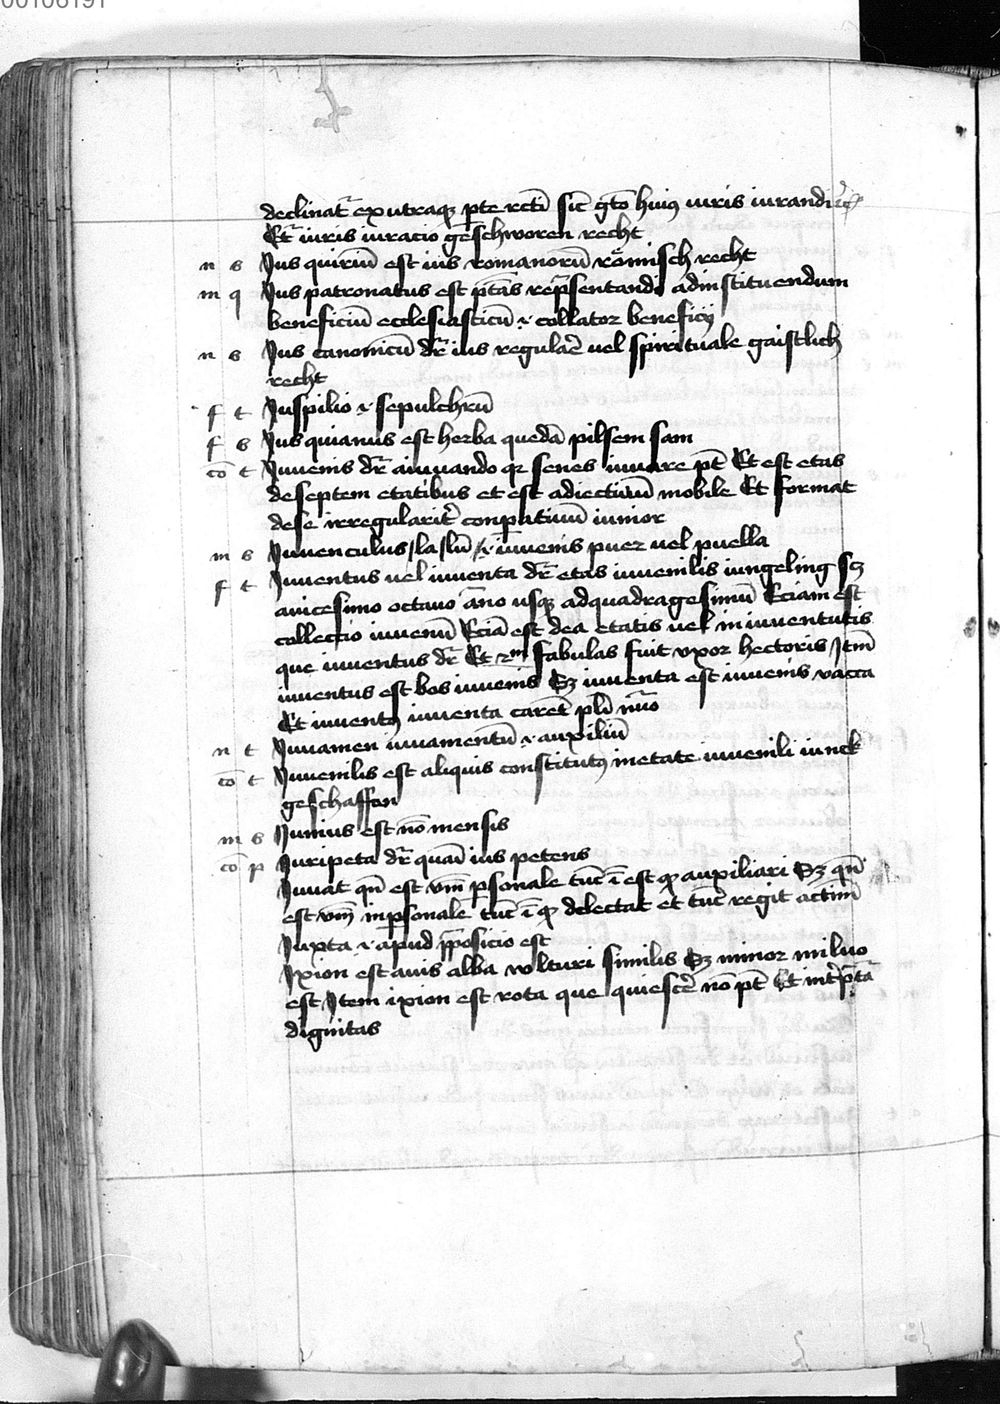 00106191
declinat᷑ ex utraqꝫ ꝑte rcti sic̄ gto huiꝰ iuris iurandi
Et᷑ iuris iuracio geschworen recht
n s Jus quiriū est ius romanorū römisch recht
m q Jus patronatus est ptās rep̄sentandi adinstituendum
beneficiū ecclesiasticū .i. collator beneficij
n s Jus canonicū dr̄ ius regular̄ uel spirituale gaistlich
recht
f t Juspilio .i. sepulchrū
f s Jus quianus est herba quedā pilsem sam
cō t Juuenis dr̄ aiuuando qꝛ senes iuuare pt̄ Et est etas
deseptem etatibus et est adiectiuū mobile Et format
dese irregularit᷑ conparatiuū iunior
m s Juuenculus /la /lū .i. iuuenis puer uel puella
f t Juuentus uel iuuenta dr̄ etas iuuenilis iungeling sꝫ
auicesimo octauo āno usqꝫ adquadragesimū Eciam est
collectio iuuenū Eciā est dea etatis uel in iuuentutis
que iuuentus dr̄ Et 2m fabulas fuit vxor hectoris Jtm̄
iuuentus est bos iuuenis Sꝫ iuuenta est iuuenis vacca
Et iuuentꝰ iuuenta carēt pli nūo
n t Juuamen iuuamentū .i. auxiliū
cō t Juuenilis est aliquis constitutꝰ inetate iuuenili iunck
geschaffon
m s Junius est nō mensis
cō p Juripeta dr̄ quasi ius petens
Juuat qn̄ est vm̄ ꝑsonale tuc̄ ī est qꝫ auxiliari Sꝫ qn̄
est vm̄ inꝑsonale tuc̄ ī qꝫ delectat et tuc̄ regit actim̄
Juxta .i. apud p̄posicio est
Jxion est auis alba wlturi similis Sꝫ minor miluo
est Jtem ixion est rota que quiesce᷑ nō pt̄ Et int᷑p̄tat᷑
dignitas